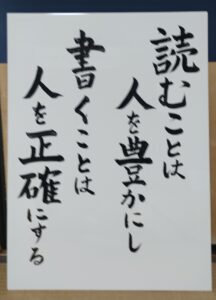 読むことは
人を豊かにし
書くことは
人を正確にする